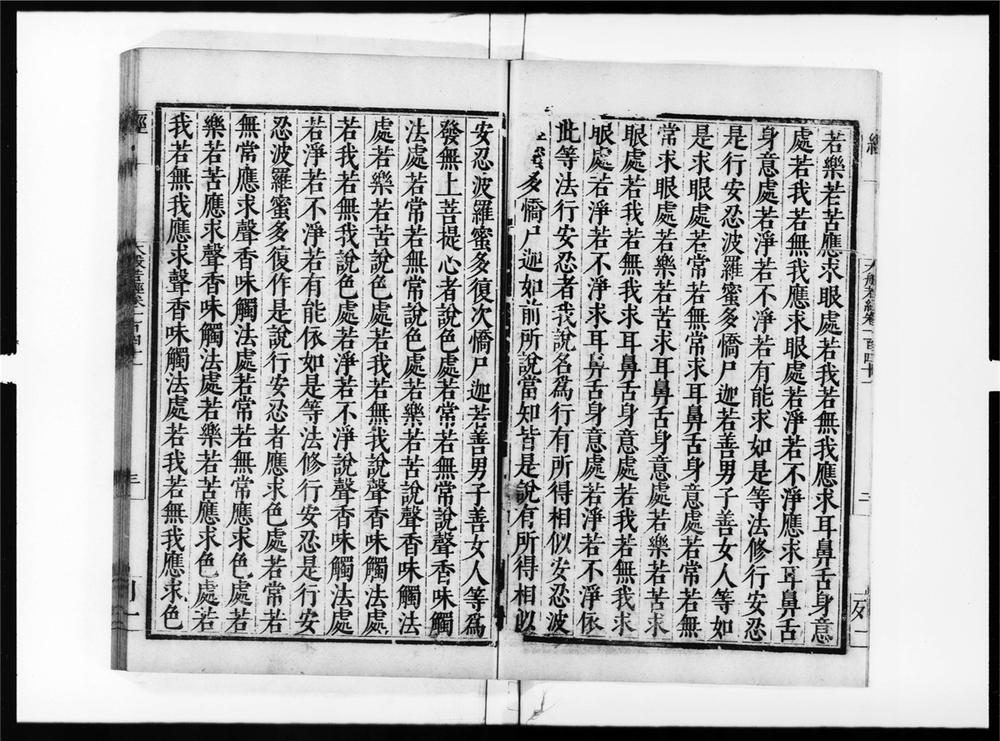 大般若經卷一百四十一
二
若樂若苦應求眼處若我若無我應求耳鼻舌身意
處若我若無我應求眼處若淨若不淨應求耳鼻舌
身意處若淨若不淨若有能求如是等法修行安忍
是行安忍波羅蜜多憍尸迦若善男子善女人等如
是求眼處若常若無常求耳鼻舌身意處若常若無
常求眼處若樂若苦求耳鼻舌身意處若樂若苦求
眼處若我若無我求耳鼻舌身意處若我若無我求
眼處若淨若不淨求耳鼻舌身意處若淨若不淨依
此等法行安忍者我說名爲行有所得相似安忍波
多憍尸迦如前所說當知皆是說有所得相似
安忍波羅蜜多復次憍尸迦若善男子善女人等爲
發無上菩提心者說色處若常若無常說聲香味觸
法處若常若無常說色處若樂若苦說聲香味觸法
處若樂若苦說色處若我若無我說聲香味觸法處
若我若無我說色處若淨若不淨說聲香味觸法處
若淨若不淨若有能依如是等法修行安忍是行安
忍波羅蜜多復作是說行安忍者應求色處若常若
無常應求聲香味觸法處若常若無常應求色處若
樂若苦應求聲香味觸法處若樂若苦應求色處若
我若無我應求聲香味觸法處若我若無我應求色
經
大般若經卷一百四十一
三